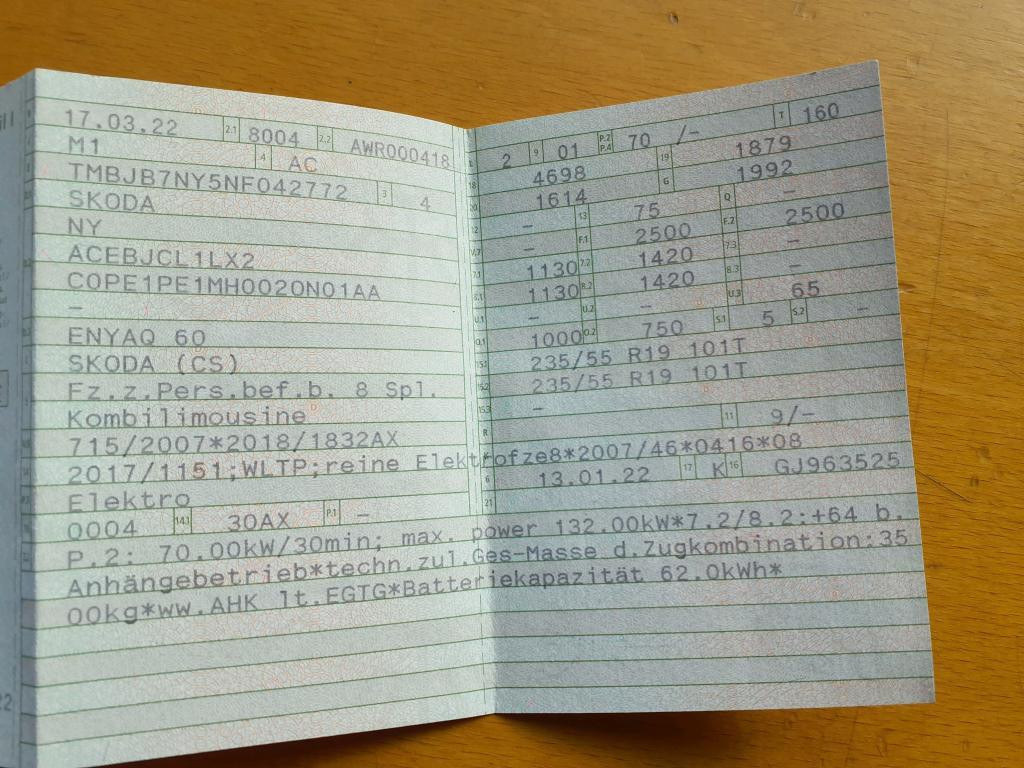 17.03.22 2.1 8004 2.2 AWR000418
M1 4 AC
TMBJB7NY5NF042772 3 4
SKODA
NY
ACEBJCL1LX2
C0PE1PE1MH0020N01AA
–
ENYAQ 60
SKODA (CS)
Fz.z.Pers.bef.b. 8 Spl.
Kombilimousine
715/2007*2018/1832AX
2017/1151;WLTP;reine Elektrofz
Elektro
0004 14.1 30AX P.1 –
2 9 01 P.2 P.4 70 /– T 160
18 4698 19 1879
20 1614 G 1992
12 – 13 75 Q –
V.7 – F.1 2500 F.2 2500
7.1 1130 7.2 1420 7.3 –
8.1 1130 8.2 1420 8.3 –
U.1 – U.2 – U.3 65
O.1 1000 O.2 750 S.1 5 S.2 –
15.1 235/55 R19 101T
15.2 235/55 R19 101T
15.3 –
R 11 9/–
e8*2007/46*0416*08
6 13.01.22 17 K 16 GJ963525
21
P.2: 70.00kW/30min; max. power 132.00kW*7.2/8.2:+64 b.
Anhängebetrieb*techn.zul.Ges-Masse d.Zugkombination:35
00kg*ww.AHK lt.EGTG*Batteriekapazität 62.0kWh*